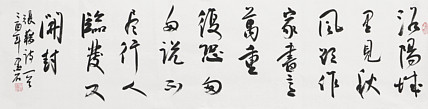 洛陽城
里見秋
風欲作
家書意
萬重
復恐匆
匆説不
尽行人
臨發又
開封
張籍詩